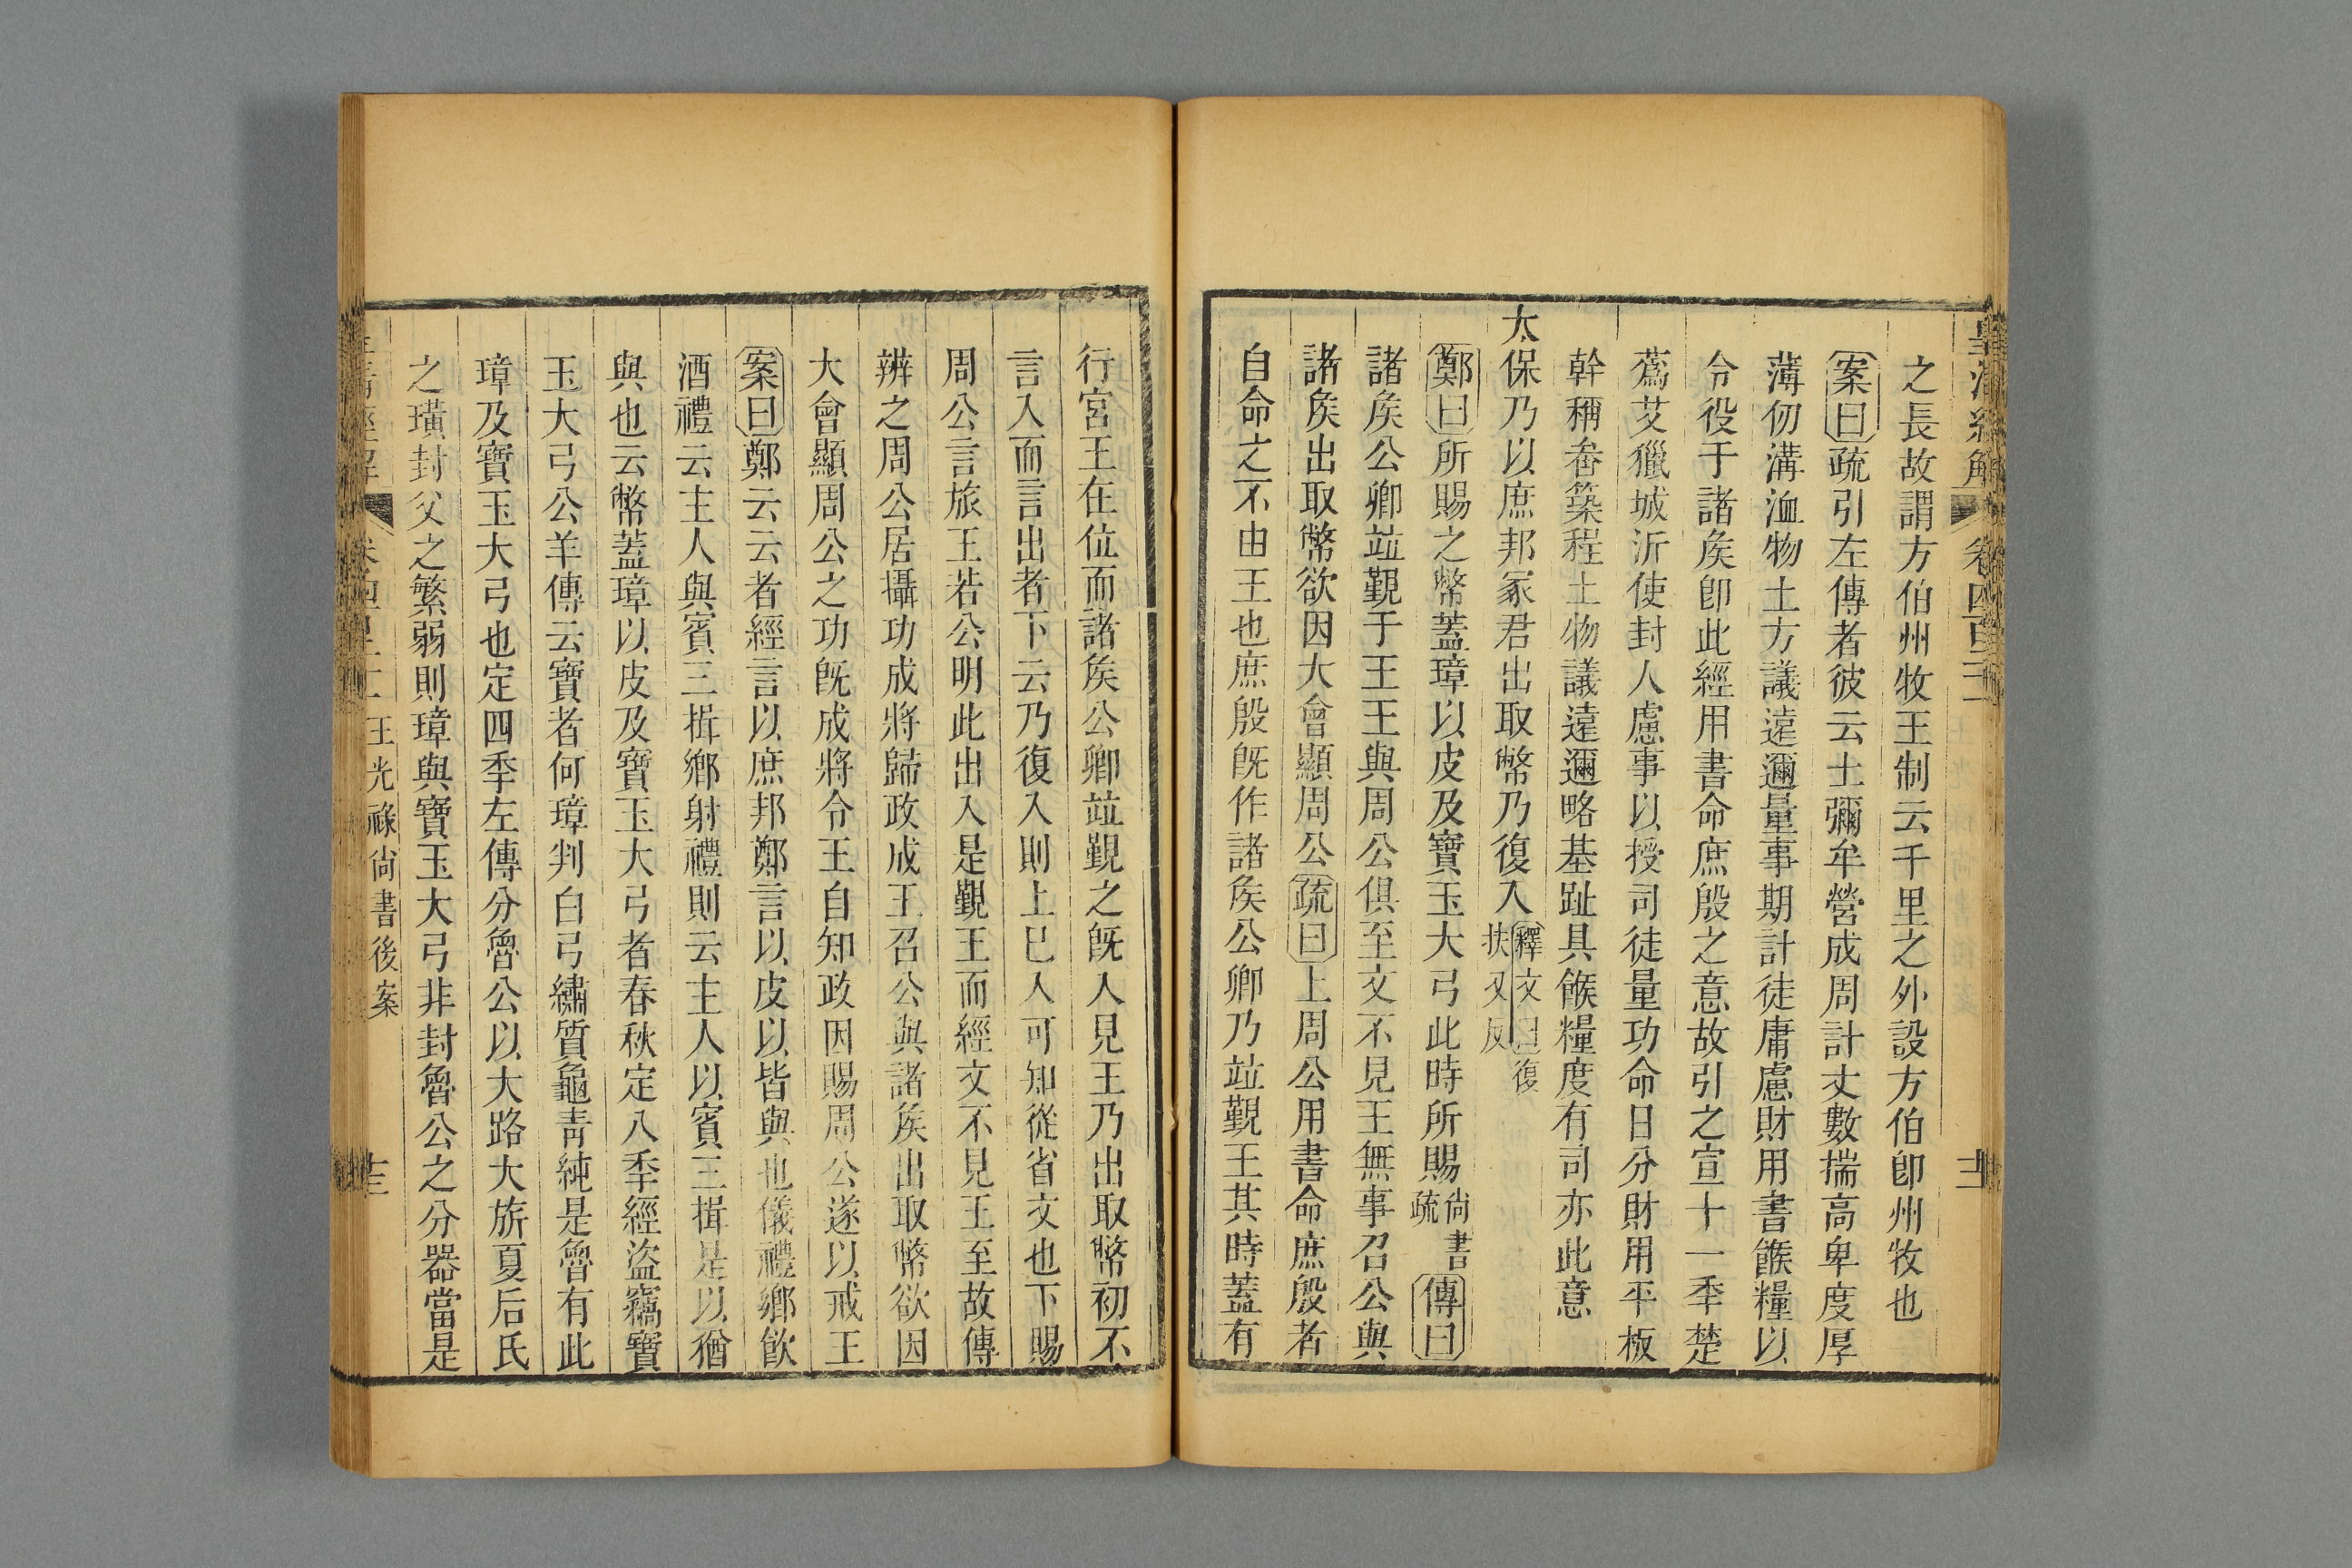 皇清經解 卷四百二十二 十二
之長故謂方伯州牧王制云千里之外設方伯卽州牧也
案曰疏引左傳者彼云士彌牟營成周計丈數揣高卑度厚
薄仞溝洫物土方議遠邇量事期計徒庸慮財用書餱糧以
令役于諸矦卽此經用書命庶殷之意故引之宣十一秊楚
蒍艾獵城沂使封人慮事以授司徒量功命日分財用平板
幹稱畚築程土物議遠邇略基趾具餱糧度有司亦此意
太保乃以庶邦冢君出取幣乃復入釋文曰復扶又反
鄭曰所賜之幣蓋璋以皮及寶玉大弓此時所賜尙書疏傳曰
諸矦公卿竝覲于王王與周公俱至文不見王無事召公與
諸矦出取幣欲因大會顯周公疏曰上周公用書命庶殷者
自命之不由王也庶殷旣作諸矦公卿乃竝覲王其時蓋有
行宮王在位而諸矦公卿竝覲之旣入見王乃出取幣初不
言入而言出者下云乃復入則上巳入可知從省文也下賜
周公言旅王若公明此出入是覲王而經文不見王至故傳
辨之周公居攝功成將歸政成王召公與諸矦出取幣欲因
大會顯周公之功旣成將令王自知政因賜周公遂以戒王
案曰鄭云云者經言以庶邦鄭言以皮以皆與也儀禮鄉飮
酒禮云主人與賓三揖鄉射禮則云主人以賓三揖是以猶
與也云幣蓋璋以皮及寶玉大弓者春秋定八秊經盜竊寶
玉大弓公羊傳云寶者何璋判白弓繡質龜靑純是魯有此
璋及寶玉大弓也定四秊左傳分魯公以大路大旂夏后氏
之璜封父之繁弱則璋與寶玉大弓非封魯公之分器當是
王光祿尙書後案 十三